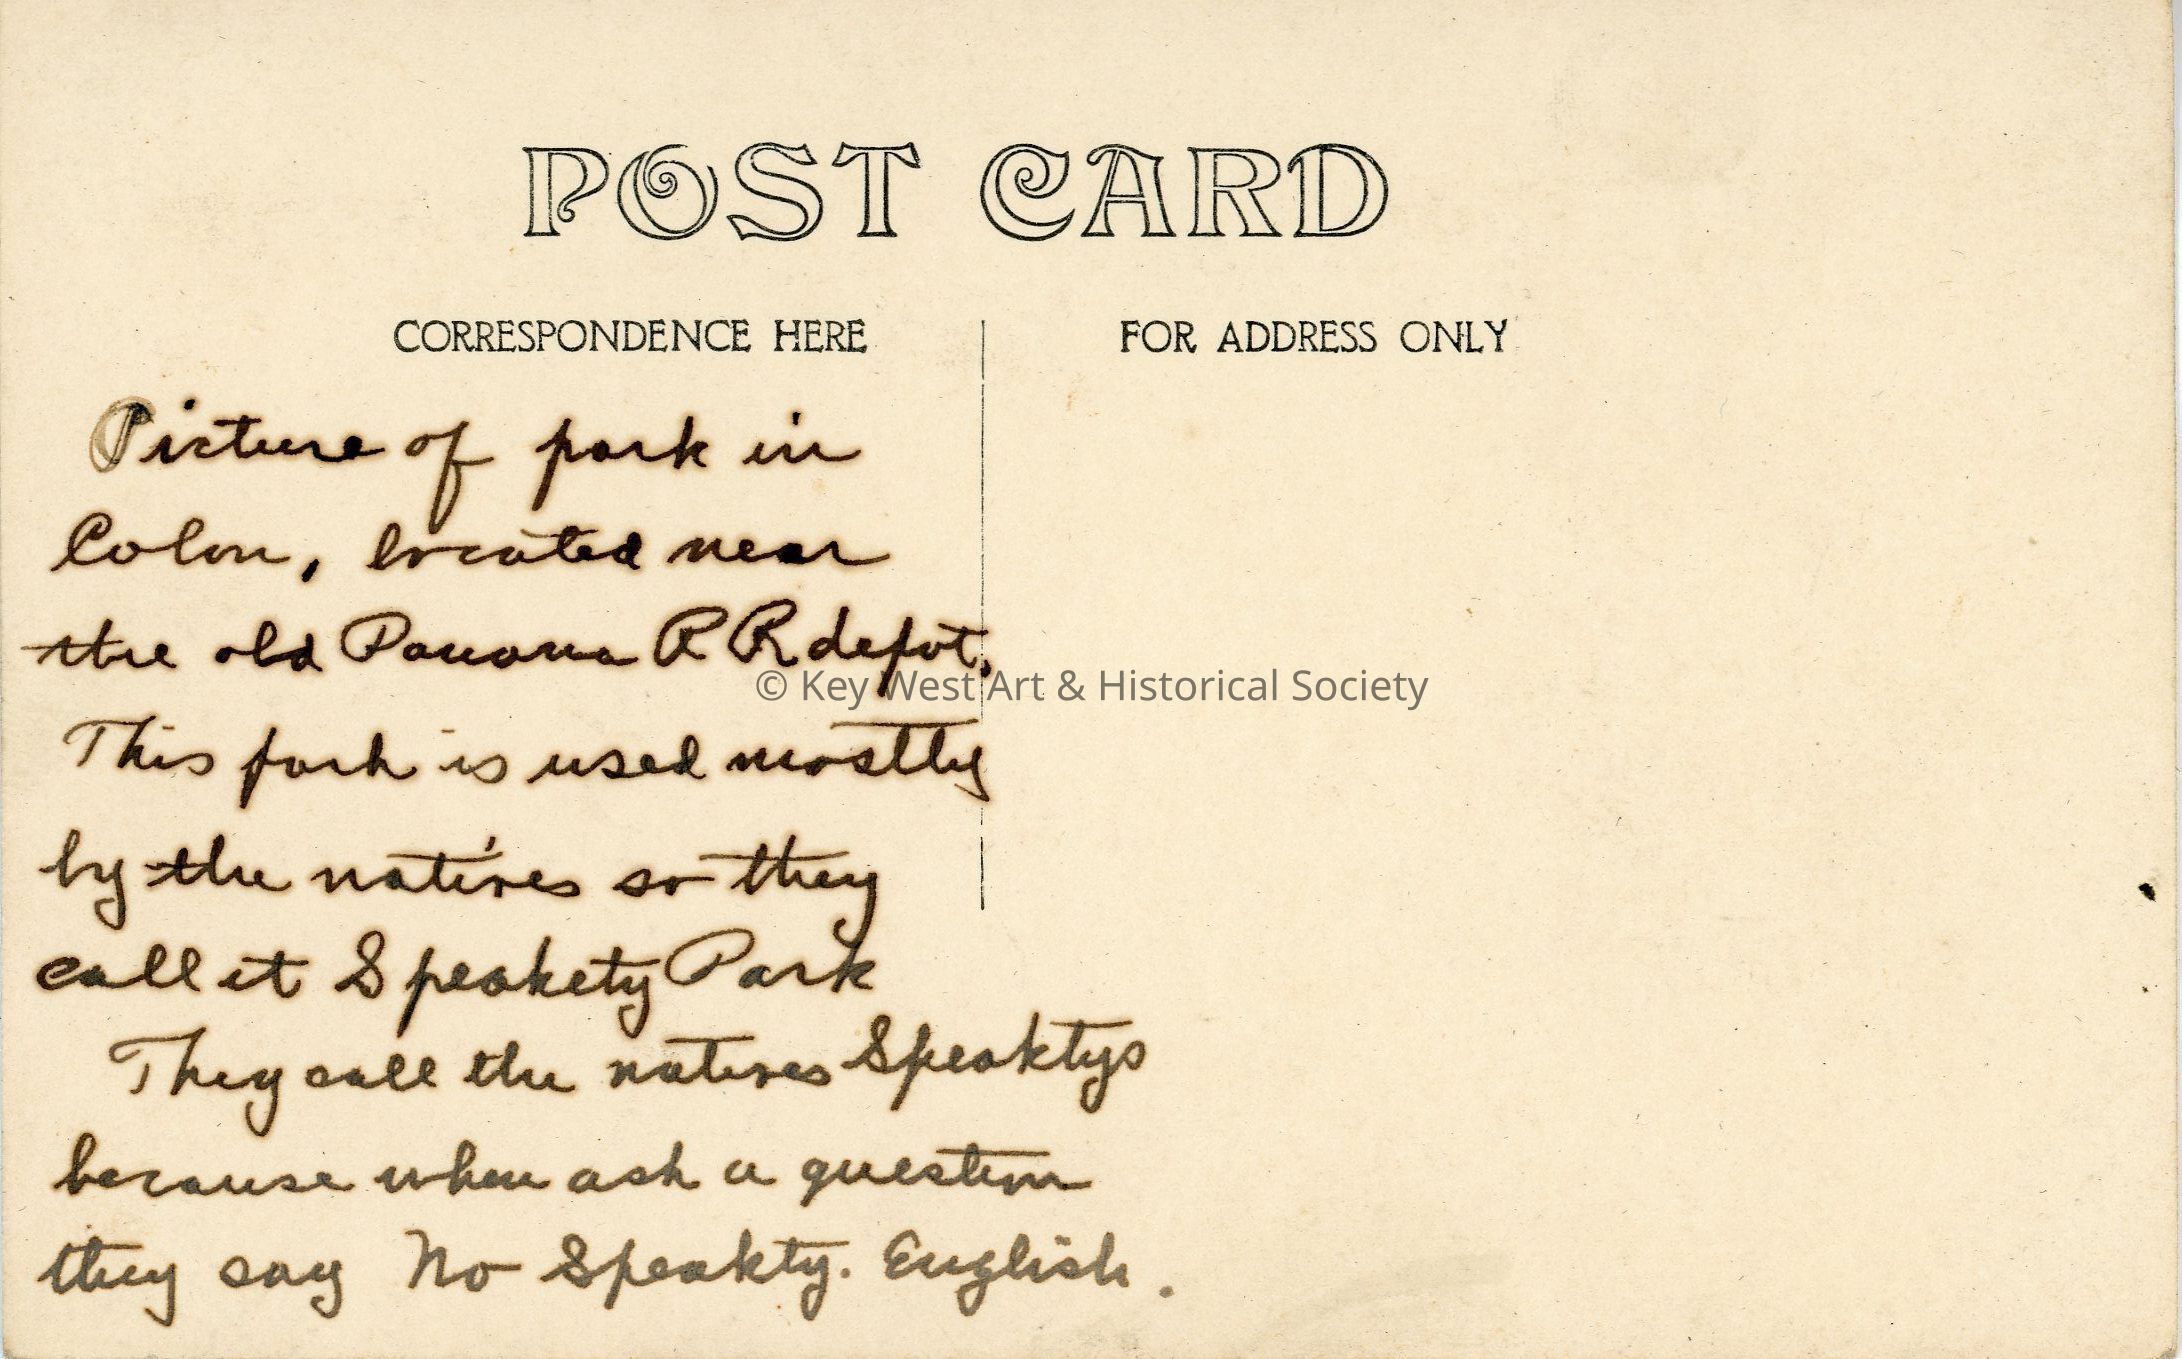 POST CARD
CORRESPONDENCE HERE
FOR ADDRESS ONLY
Picture of park in
Colon, located near
the old Panama R R depot.
© Key West Art & Historical Society
This park is used mostly
by the natives so they
call it Speakety Park
They call the natives Speaktys
because when ask a question
they say No Speakty. English.